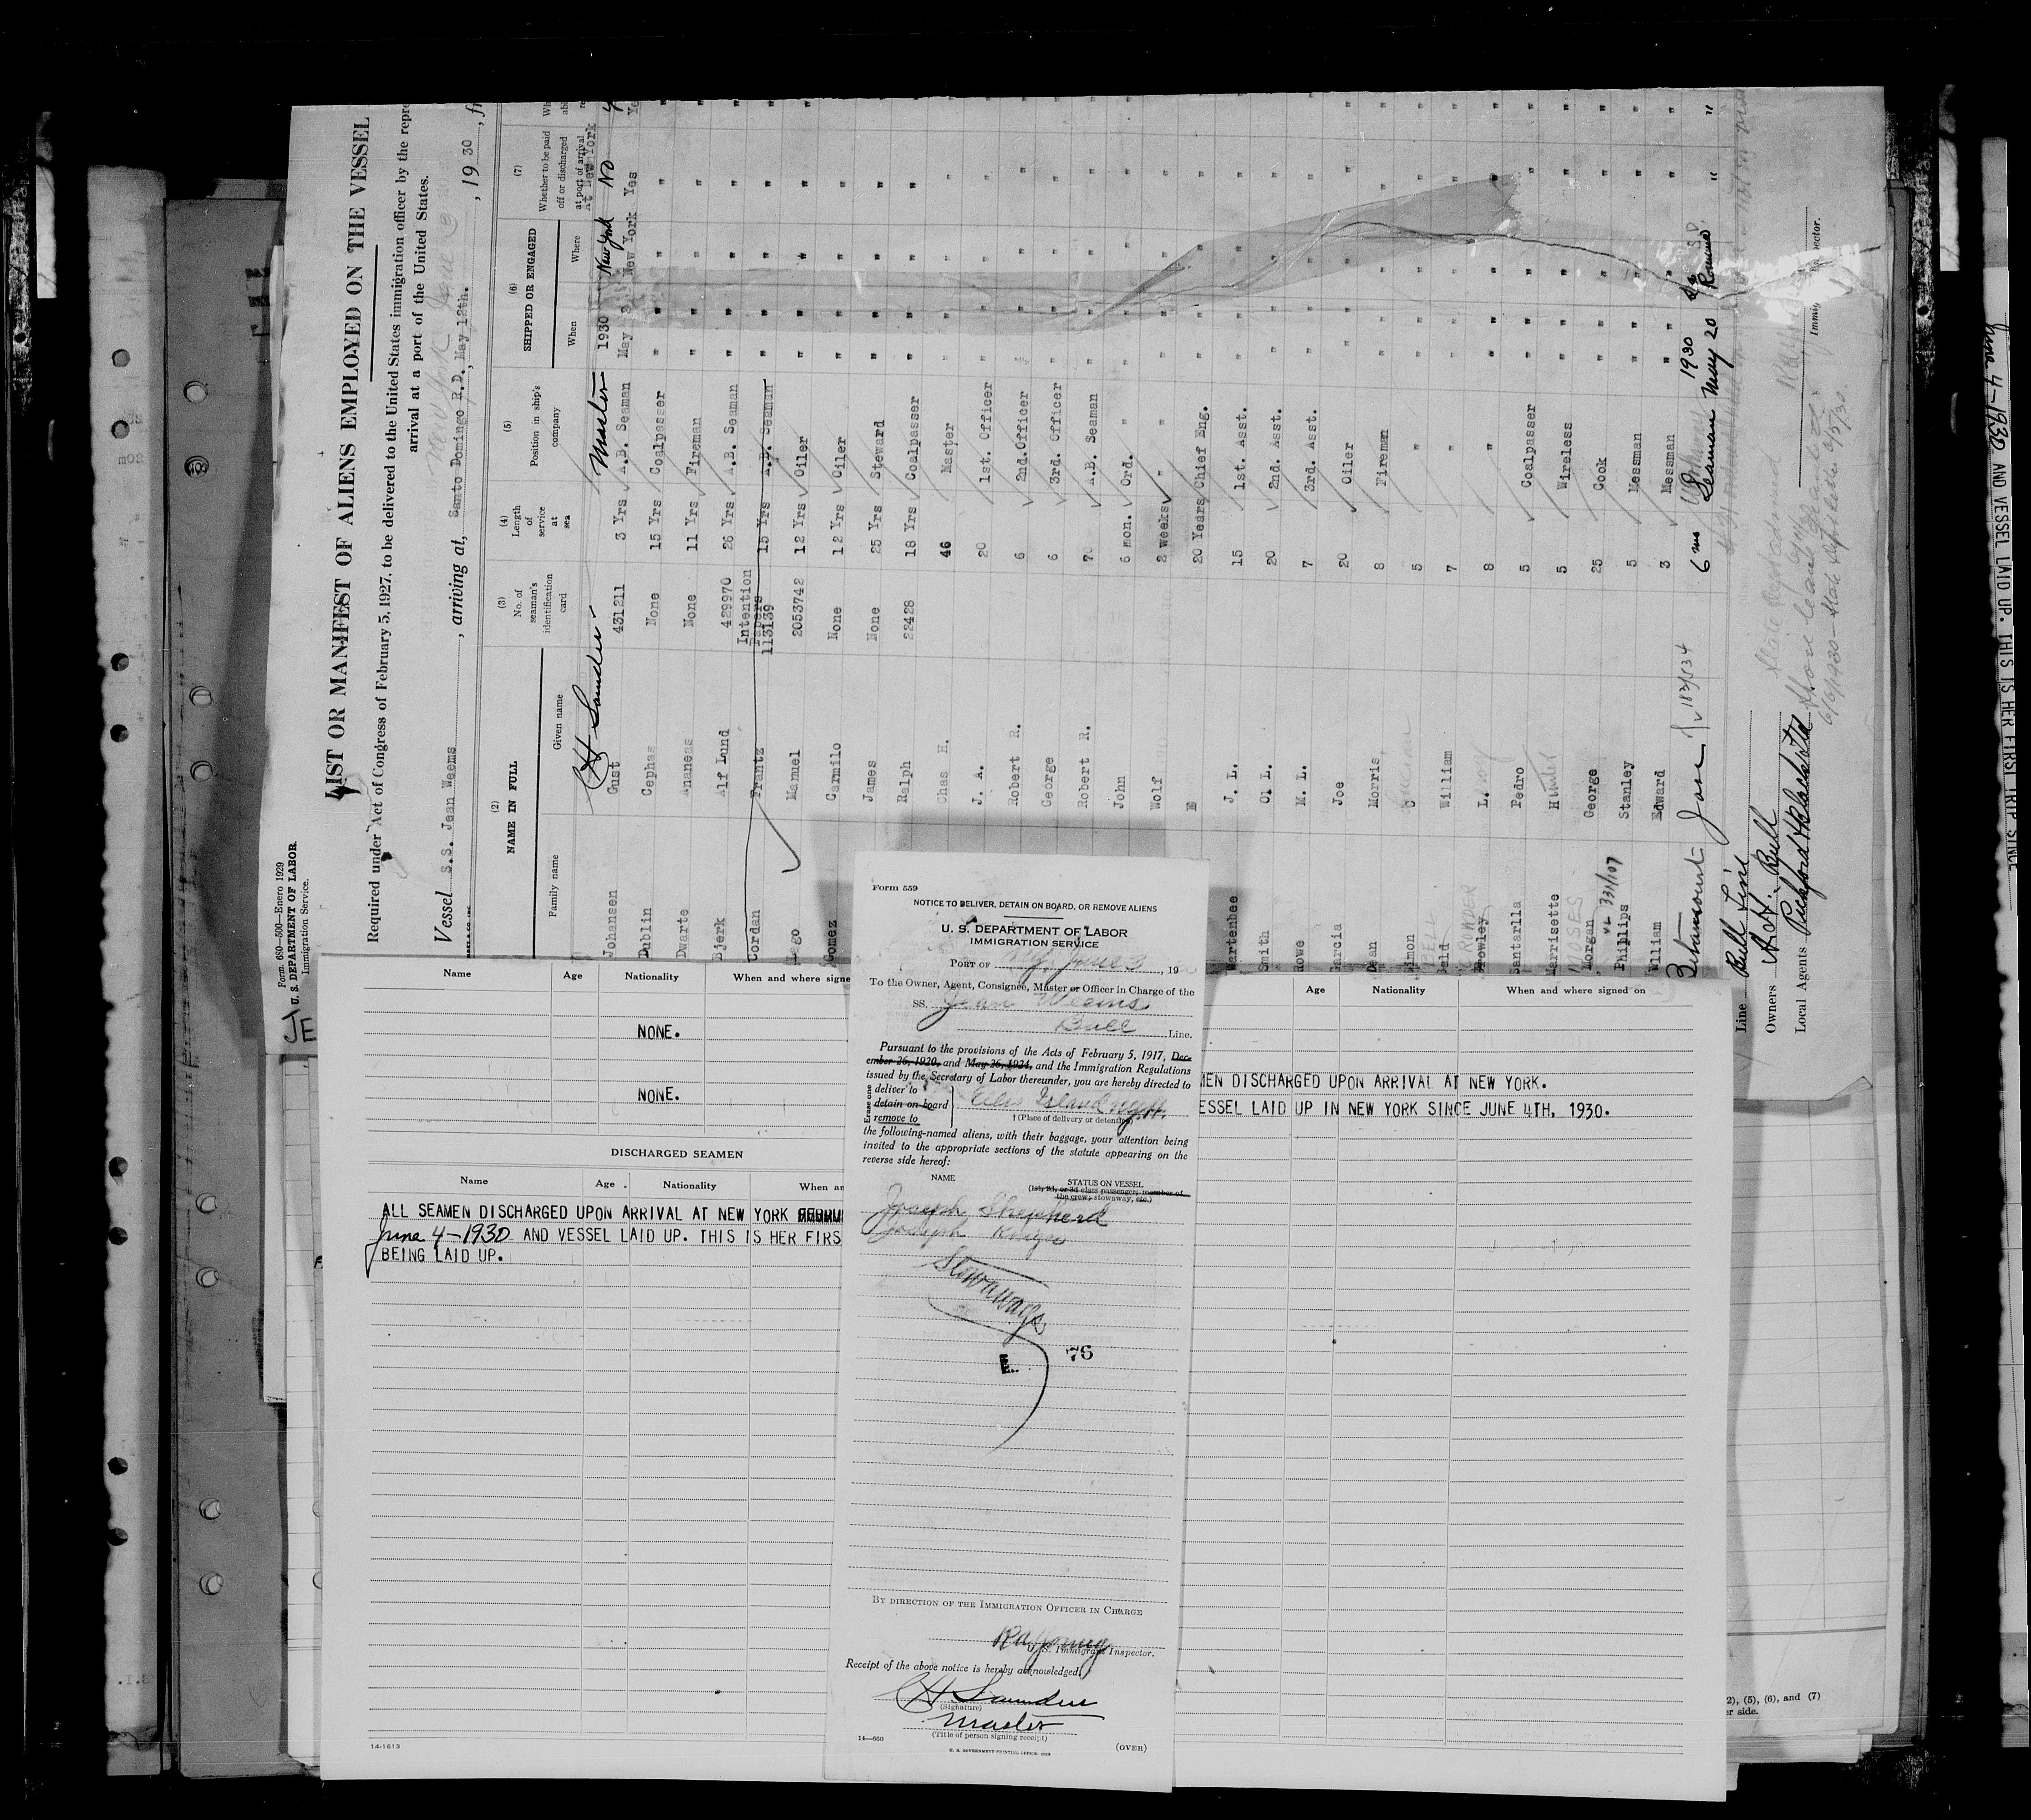 Form 680—500—Enero 1929
U. S. DEPARTMENT OF LABOR.
Immigration Service.
LIST OR MANIFEST OF ALIENS EMPLOYED ON THE VESSEL
Required under Act of Congress of February 5, 1927, to be delivered to the United States immigration officer by the repre
arrival at a port of the United States.
Vessel S.S. Jean Weems , arriving at, Santo Domingo R.D. May 12th. , 19 30 , fr
(2) (3) (4) (5) (6) (7)
NAME IN FULL
Family name Given name
No. of seaman's identification card
Length of service at sea
Position in ship's company
SHIPPED OR ENGAGED
When Where
Whether to be paid off or discharged at port of arrival
CH Saunders Master 1930 New York No
Johansen Gust 431211 3 Yrs A.B. Seaman May New York Yes
Dublin Cephas None 15 Yrs Coalpasser " " "
Dwarte Ananeas None 11 Yrs Fireman " " "
Bjerk Alf Lund 429970 26 Yrs A.B. Seaman " " "
Cordan Frantz Intention Papers 113139 15 Yrs A.B. Seaman " " "
ago Manuel 2053742 12 Yrs Oiler " " "
Gomez Carmilo None 12 Yrs Oiler " " "
James None 25 Yrs Steward " " "
Ralph 22428 18 Yrs Coalpasser " " "
Chas H. 46 Master " " "
J. A. 20 1st. Officer " " "
Robert R. 6 2nd.Officer " " "
George 6 3rd. Officer " " "
Robert R. 7 A.B. Seaman " " "
John 6 mon. Ord. " " " "
Wolf 2 Weeks " " " " "
E 20 Years Chief Eng. " " "
Wartenbee J. L. 15 1st. Asst. " " "
Smith Ol L. 20 2nd. Asst. " " "
Rowe M. L. 7 3rd. Asst. " " "
Garcia Joe 20 Oiler " " "
Dean Morris 8 Fireman " " "
imon C 5 " " " "
BELL
eld William 7 " " " "
CROWDER
Crowley L. 8 " " " "
Santarlla Pedro 5 Coalpasser " " "
Marrisette H 5 Wireless " " "
MOSES
Morgan George 25 Cook " " "
Phillips Stanley 5 Messman " " "
William Edward 3 Messman " " "
Betancourt Jose 183/834 6 ms Seaman 1930 May 20 Romana "
Line Bull Line
Owners A.H. Bull
Local Agents
Immig ector.
Name Age Nationality When and where signe
NONE.
NONE.
DISCHARGED SEAMEN
Name Age Nationality When an
ALL SEAMEN DISCHARGED UPON ARRIVAL AT NEW YORK
June 4-1930 AND VESSEL LAID UP. THIS IS HER FIRS
BEING LAID UP.
14-1613
Form 559
NOTICE TO DELIVER, DETAIN ON BOARD, OR REMOVE ALIENS
U. S. DEPARTMENT OF LABOR
IMMIGRATION SERVICE
PORT OF NY, June 3, 19
To the Owner, Agent, Consignee, Master or Officer in Charge of the
SS. Jean Weems
Bull Line.
Pursuant to the provisions of the Acts of February 5, 1917, Dec-
ember 26, 1920, and May 26, 1924, and the Immigration Regulations
issued by the Secretary of Labor thereunder, you are hereby directed to
Erase one
deliver to
detain on board
remove to
Ellis Island
† (Place of delivery or detention)
the following-named aliens, with their baggage, your attention being
invited to the appropriate sections of the statute appearing on the
reverse side hereof:
NAME STATUS ON VESSEL
(1st, 2d, or 3d class passenger, member of
the crew, stowaway, etc.)
Joseph Shepherd
Joseph
Stowaways
76
BY DIRECTION OF THE IMMIGRATION OFFICER IN CHARGE
U. S. Immigrant Inspector.
Receipt of the above notice is hereby acknowledged.
CH Saunders
(Signature)
Master
(Title of person signing receipt)
14—660
U. S. GOVERNMENT PRINTING OFFICE: 1929
(OVER)
Age Nationality When and where signed on
MEN DISCHARGED UPON ARRIVAL AT NEW YORK.
ESSEL LAID UP IN NEW YORK SINCE JUNE 4TH, 1930.
2), (5), (6), and (7)
er side.
June 4-1930 AND VESSEL LAID UP. THIS IS HER FIRST TRIP SINCE